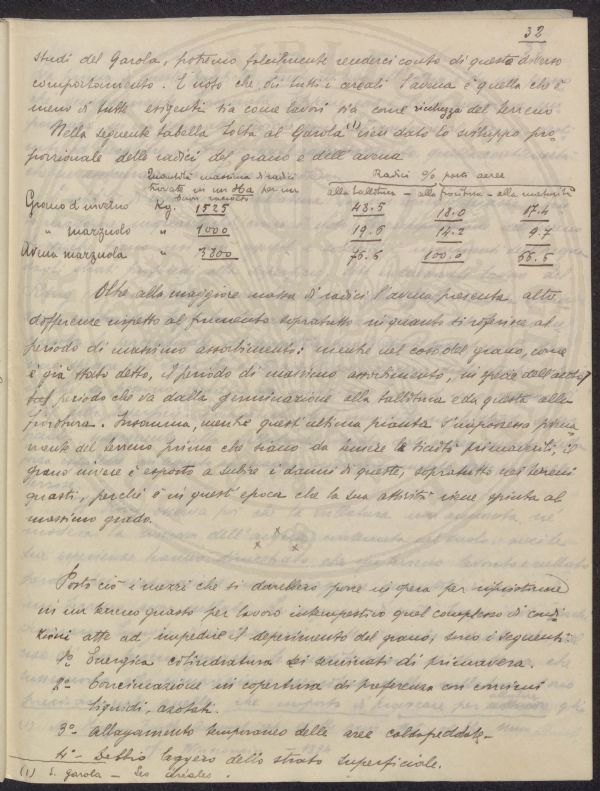 32
studi del Garola, potremo facilmente renderci conto di questo diverso
comportamento. È noto che, di tutti i cereali l'avena è quella che è
meno di tutte esigenti sia come lavori sia come ricchezza del terreno
Nella seguente tabella tolta al Garola (1) vien dato lo sviluppo pro-
porzionale delle radici del grano e dell'avena
Quantità massima di radici
trovate in un Ha per un
Radici % parti aeree
alla tallitura - alla fioritura - alla maturità
Grano d'inverno Kg. 1525 43.5 18.0 17.4
" marzuolo " 1000 19.6 14.2 9.7
Avena marzuola " 3800 75.5 100.0 55.5
Oltre alla maggiore massa di radici l'avena presenta altre
differenze rispetto al frumento sopratutto in quanto si riferisce al
periodo di massimo assorbimento: mentre nel caso del grano, come
è già stato detto, il periodo di massimo assorbimento, in specie dell'azoto,
periodo che va dalla germinazione alla tallitura e da questa alla
fioritura. Insomma, mentre quest'ultima pianta s'impossessa
del terreno prima che siano da temere le siccità primaverili, il
grano invece è esposto a subire i danni di queste, sopratutto nei terreni
guasti, perchè è in quest'epoca che la sua attività viene spinta al
massimo grado.
x x x
Posto ciò i mezzi che si dovrebbero porre in opera per ripristinare
in un terreno guasto per lavoro intempestivo quel complesso di condi
zioni atte ad impedire il deperimento del grano, sono i seguenti:
1º Energica cilindratura dei seminati di primavera.
2º - Concimazione in copertura di preferenza con concimi
liquidi azotati.
3º - Allagamento temporaneo delle aree
4º - Debbio leggero dello strato superficiale.
(1) Garola - Les céréales.